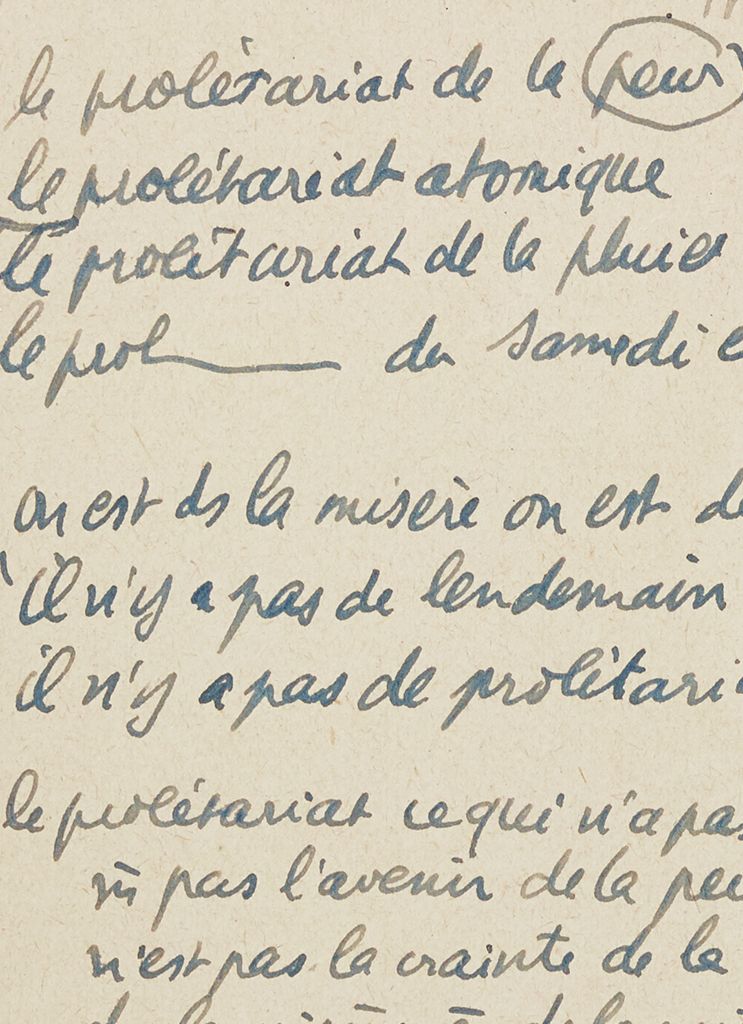 le prolétariat de la peur
le prolétariat atomique
le prolétariat de la pluie
le prol du samedi
on est ds la misère on est
il n'y a pas de lendemain
il n'y a pas de prolétari
le prolétariat ce qui n'a pas
pas l'avenir de la peu
n'est pas la crainte de la